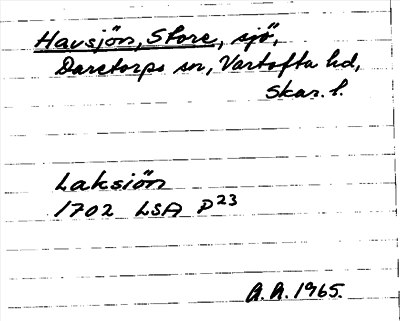 Havsjön, Store, sjö,
Daretorps sn, Vartofta hd,
Skar. l.
Laksiön
1702 LSA P23
A.A. 1965.